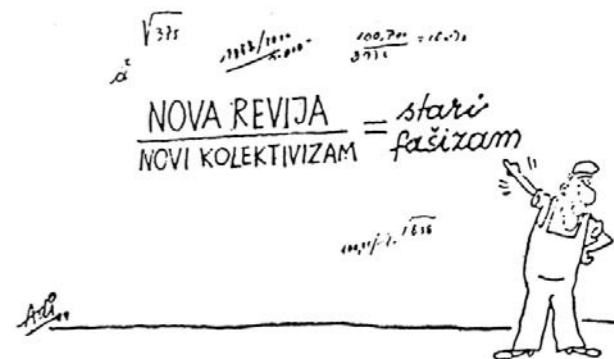 √375
NOVA REVIJA
NOVI KOLEKTIVIZAM
= stari
fašizam